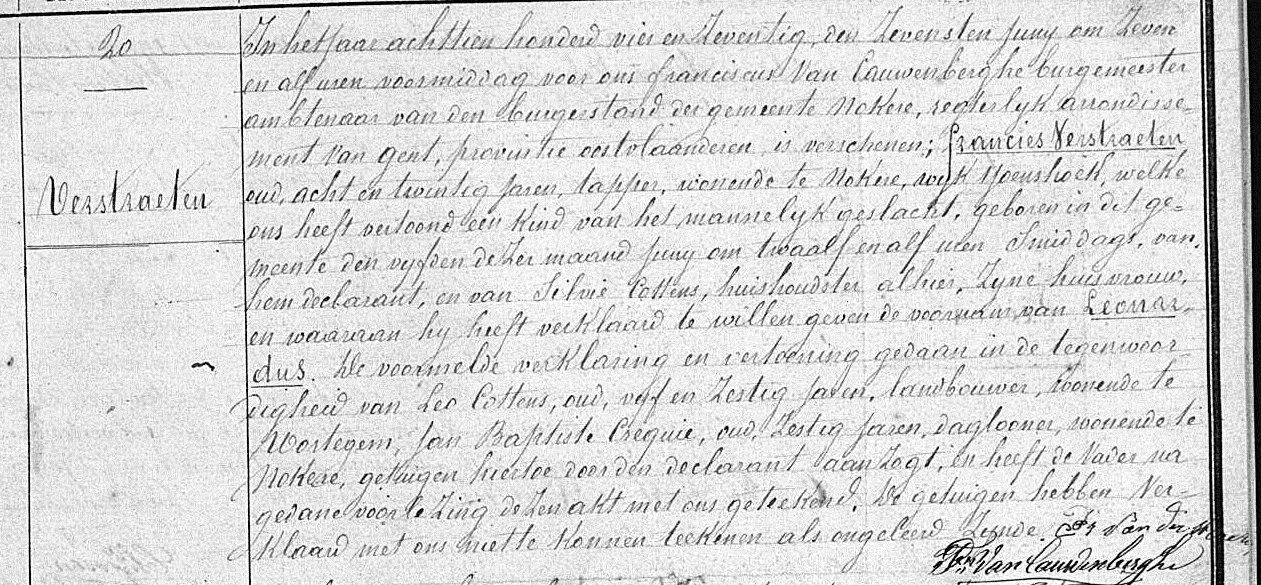 20
Verstraeten
In het Jaar achttien honderd vier en Zeventig, den Zevensten Juny om Zeven
en alf uren voormiddag voor ons franciscus Van Cauwenberghe burgemeester
ambtenaar van den burgerstand der gemeente Nokere, regterlyk arrondisse=
ment Van Gent, provintie oostvlaanderen is verschenen; francies Verstraeten
oud, acht en twintig Jaren, tapper, wonende te Nokere, wyk welke
ons heeft vertoond een Kind van het mannelyk geslacht, geboren in de ge=
meente den vyfden dezer maand Juny om twaalf en alf uren Smiddags, van
hem declarant, en van Silvie Cottens, huishoudster alhier, Zyne huisvrouw,
en waaraan hy heeft verklaard te willen geven de voornam van Leonar=
dus. De voormelde verklaring en vertooning gedaan in de tegenwoor
digheid van Leo Cottens, oud, vyf en Zestig Jaren, landbouwer, woonende te
Wortegem, Jan Baptiste Crequie, oud, Zestig Jaren, daglooner, wonende te
Nokere, getuigen hiertoe door den declarant aanzogt, en heeft de Vader na
gedane voorleZing deZen akt met ons geteekend, De getuigen hebben Ver=
klaard met ons niet te Konnen teekenen als ongeleerd Zynde. Fr Van der
Fr. Van Cauwenberghe